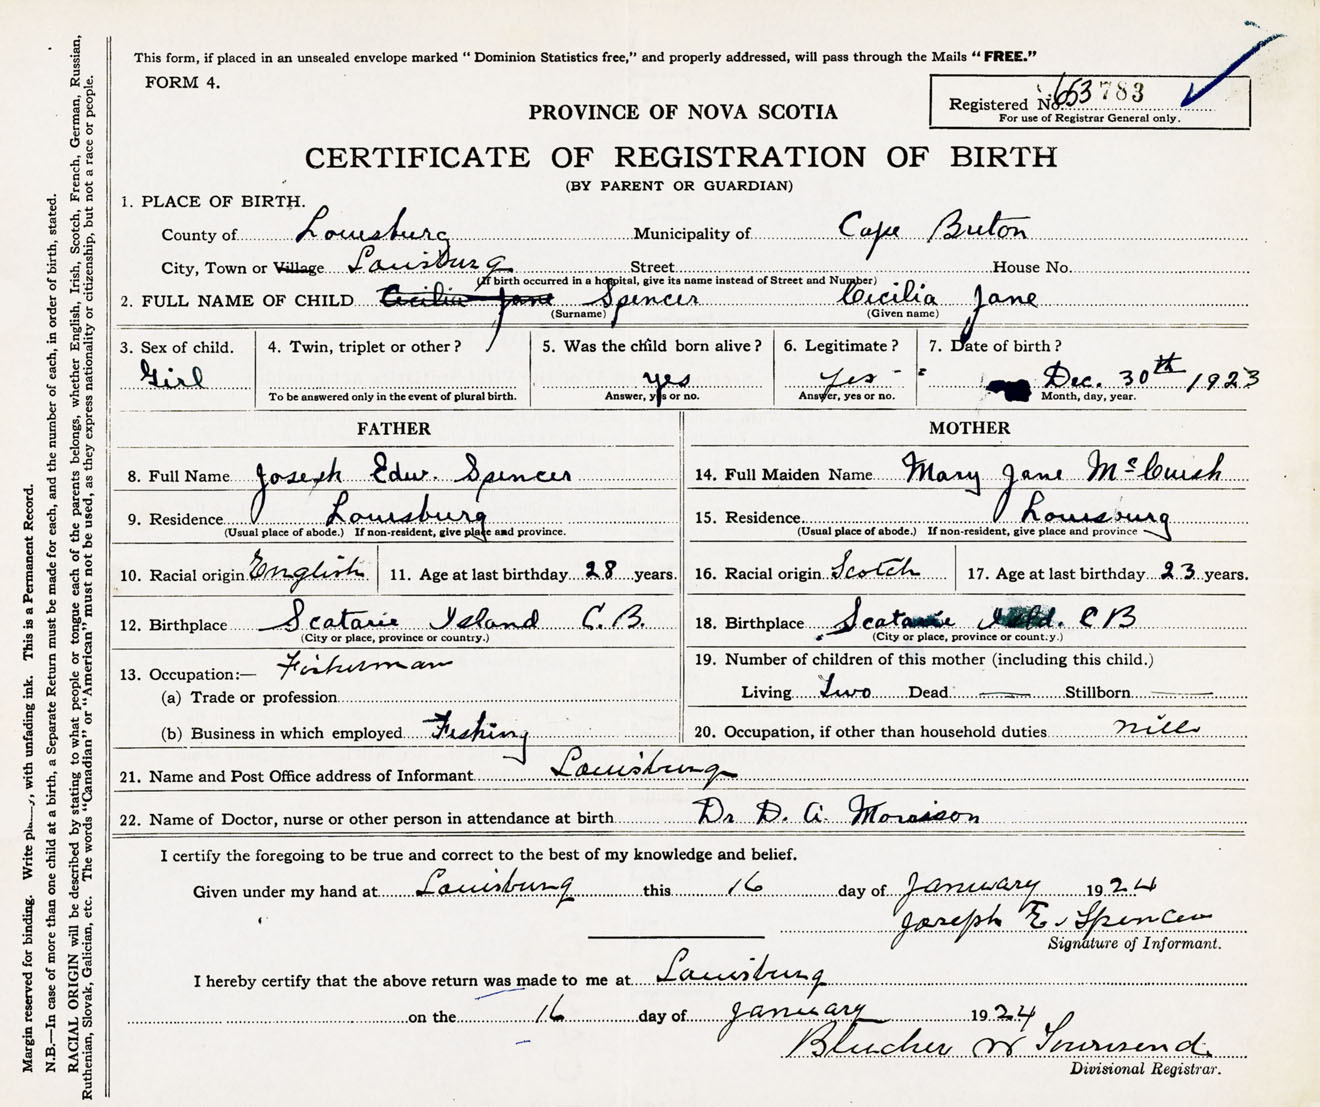 This form, if placed in an unsealed envelope marked "Dominion Statistics free," and properly addressed, will pass through the Mails "FREE."
FORM 4.
Registered No. 653783
For use of Registrar General only.
PROVINCE OF NOVA SCOTIA
CERTIFICATE OF REGISTRATION OF BIRTH
(BY PARENT OR GUARDIAN)
1. PLACE OF BIRTH.
County of Louisburg Municipality of Cape Breton
City, Town or Village Louisburg Street House No.
(If birth occurred in a hospital, give its name instead of Street and Number)
2. FULL NAME OF CHILD Cecilia Jane Spencer Cecilia Jane
(Surname) (Given name)
3. Sex of child. 4. Twin, triplet or other? 5. Was the child born alive? 6. Legitimate? 7. Date of birth?
Girl yes yes - Dec. 30th 1923
To be answered only in the event of plural birth. Answer, yes or no. Answer, yes or no. Month, day, year.
FATHER MOTHER
8. Full Name Joseph Edw. Spencer 14. Full Maiden Name Mary Jane McCuish
9. Residence Louisburg 15. Residence Louisburg
(Usual place of abode.) If non-resident, give place and province. (Usual place of abode.) If non-resident, give place and province
10. Racial origin English 11. Age at last birthday 28 years. 16. Racial origin Scotch 17. Age at last birthday 23 years.
12. Birthplace Scatarie Island C.B. 18. Birthplace Scatarie Isld. C B
(City or place, province or country.) (City or place, province or country.)
13. Occupation:— Fisherman 19. Number of children of this mother (including this child.)
(a) Trade or profession Living Two Dead — Stillborn —
(b) Business in which employed Fishing 20. Occupation, if other than household duties nill
21. Name and Post Office address of Informant Louisburg
22. Name of Doctor, nurse or other person in attendance at birth Dr D. A. Morrison
I certify the foregoing to be true and correct to the best of my knowledge and belief.
Given under my hand at Louisburg this 16 day of January 1924
Joseph E. Spencer
Signature of Informant.
I hereby certify that the above return was made to me at Louisburg
on the 16 day of January 1924
Blucher W Townsend.
Divisional Registrar.
Margin reserved for binding. Write with unfading ink. This is a Permanent Record.
N.B.—In case of more than one child at a birth, a Separate Return must be made for each, and the number of each, in order of birth, stated.
RACIAL ORIGIN will be described by stating to what people or tongue each of the parents belongs, whether English, Irish, Scotch, French, German, Russian,
Ruthenian, Slovak, Galician, etc. The words "Canadian" or "American" must not be used, as they express nationality or citizenship, but not a race or people.